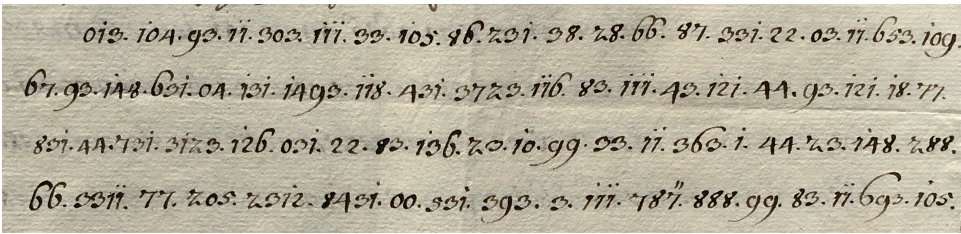 013. 104. 93. 11. 303. 111. 33. 105. 86. 231. 38. 28. 66. 87. 331. 22. 03. 11. 653. 109.
67. 93. 148. 631. 04. 131. 1493. 118. 431. 3723. 116. 83. 111. 43. 121. 44. 93. 121. 18. 77.
831. 44. 731. 3123. 126. 031. 22. 83. 136. 23. 10. 99. 33. 11. 363. 1. 44. 23. 148. 288.
66. 3311. 77. 205. 2312. 8431. 00. 531. 393. 3. 111. 787. 888. 99. 83. 11. 693. 105.